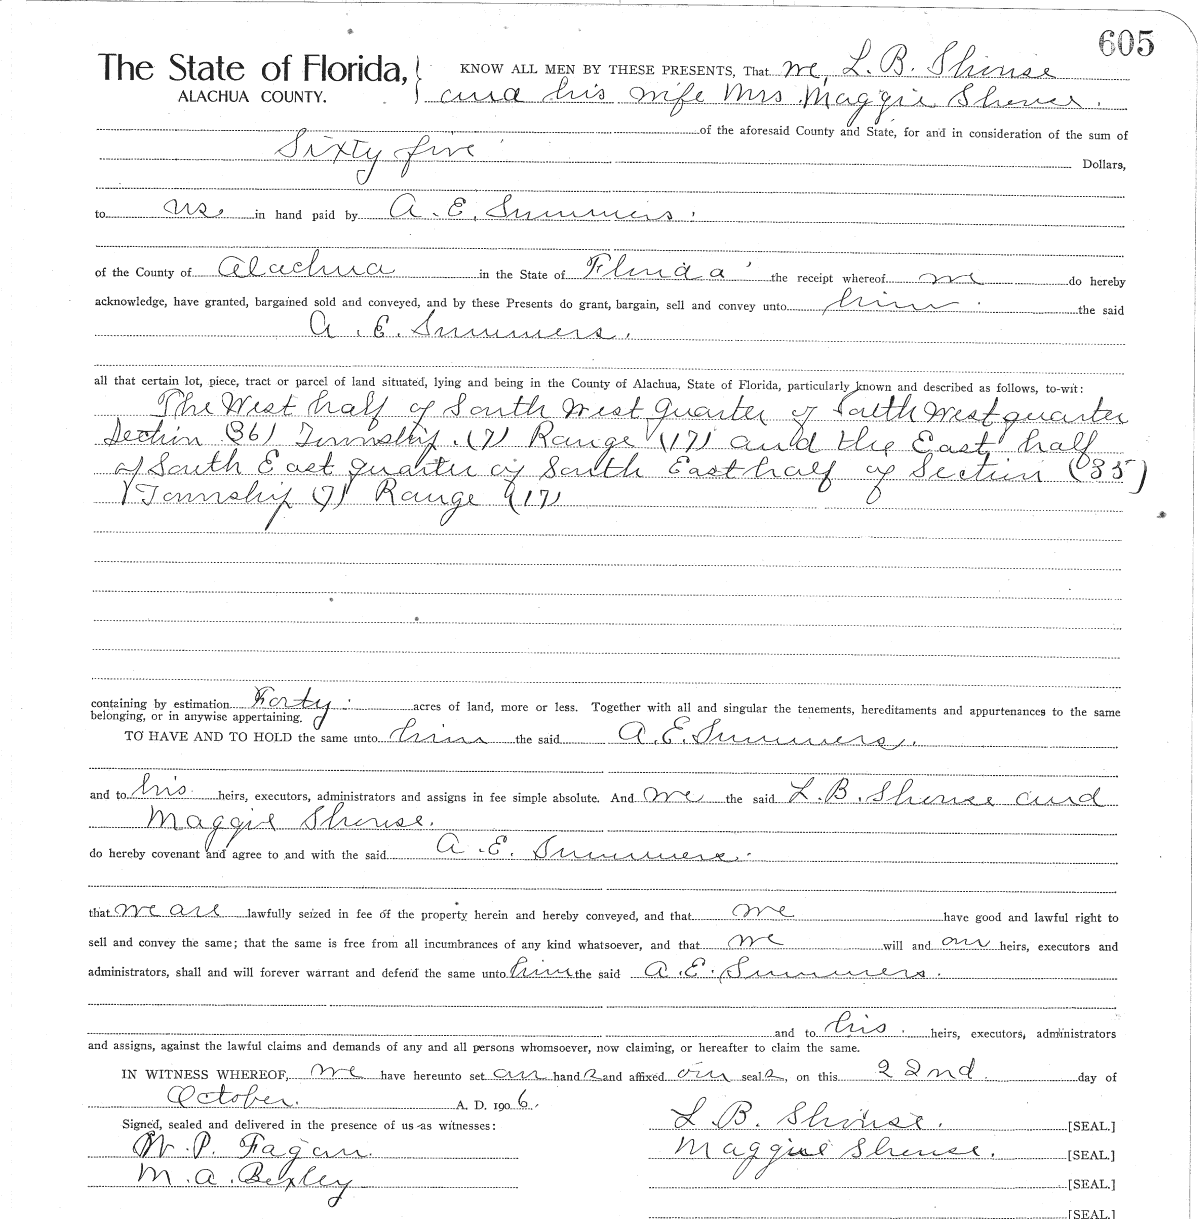 605
The State of Florida, KNOW ALL MEN BY THESE PRESENTS, That we, L. B. Shouse
ALACHUA COUNTY. and his wife Mrs Maggie Shouse.
of the aforesaid County and State, for and in consideration of the sum of
Sixty five Dollars,
to us in hand paid by A. E. Summers.
of the County of Alachua in the State of Florida the receipt whereof we do hereby
acknowledge, have granted, bargained sold and conveyed, and by these Presents do grant, bargain, sell and convey unto him the said
A. E. Summers.
all that certain lot, piece, tract or parcel of land situated, lying and being in the County of Alachua, State of Florida, particularly known and described as follows, to-wit:
The West half of South West quarter of South West quarter
Section (36) Township (7) Range (17) and the East half
of South East quarter of South East half of Section (35)
Township (7) Range (17)
containing by estimation Forty acres of land, more or less. Together with all and singular the tenements, hereditaments and appurtenances to the same
belonging, or in anywise appertaining.
TO HAVE AND TO HOLD the same unto him the said A. E. Summers.
and to his heirs, executors, administrators and assigns in fee simple absolute. And we the said L. B. Shouse and
Maggie Shouse.
do hereby covenant and agree to and with the said A. E. Summers.
that we are lawfully seized in fee of the property herein and hereby conveyed, and that we have good and lawful right to
sell and convey the same; that the same is free from all incumbrances of any kind whatsoever, and that we will and our heirs, executors and
administrators, shall and will forever warrant and defend the same unto him the said A. E. Summers.
and to his heirs, executors, administrators
and assigns, against the lawful claims and demands of any and all persons whomsoever, now claiming, or hereafter to claim the same.
IN WITNESS WHEREOF, we have hereunto set our hand s and affixed our seal s, on this 22nd. day of
October. A. D. 190 6.
Signed, sealed and delivered in the presence of us as witnesses: L. B. Shouse. [SEAL.]
W. P. Fagan. Maggie Shouse. [SEAL.]
M. A. Bexley [SEAL.]
[SEAL.]